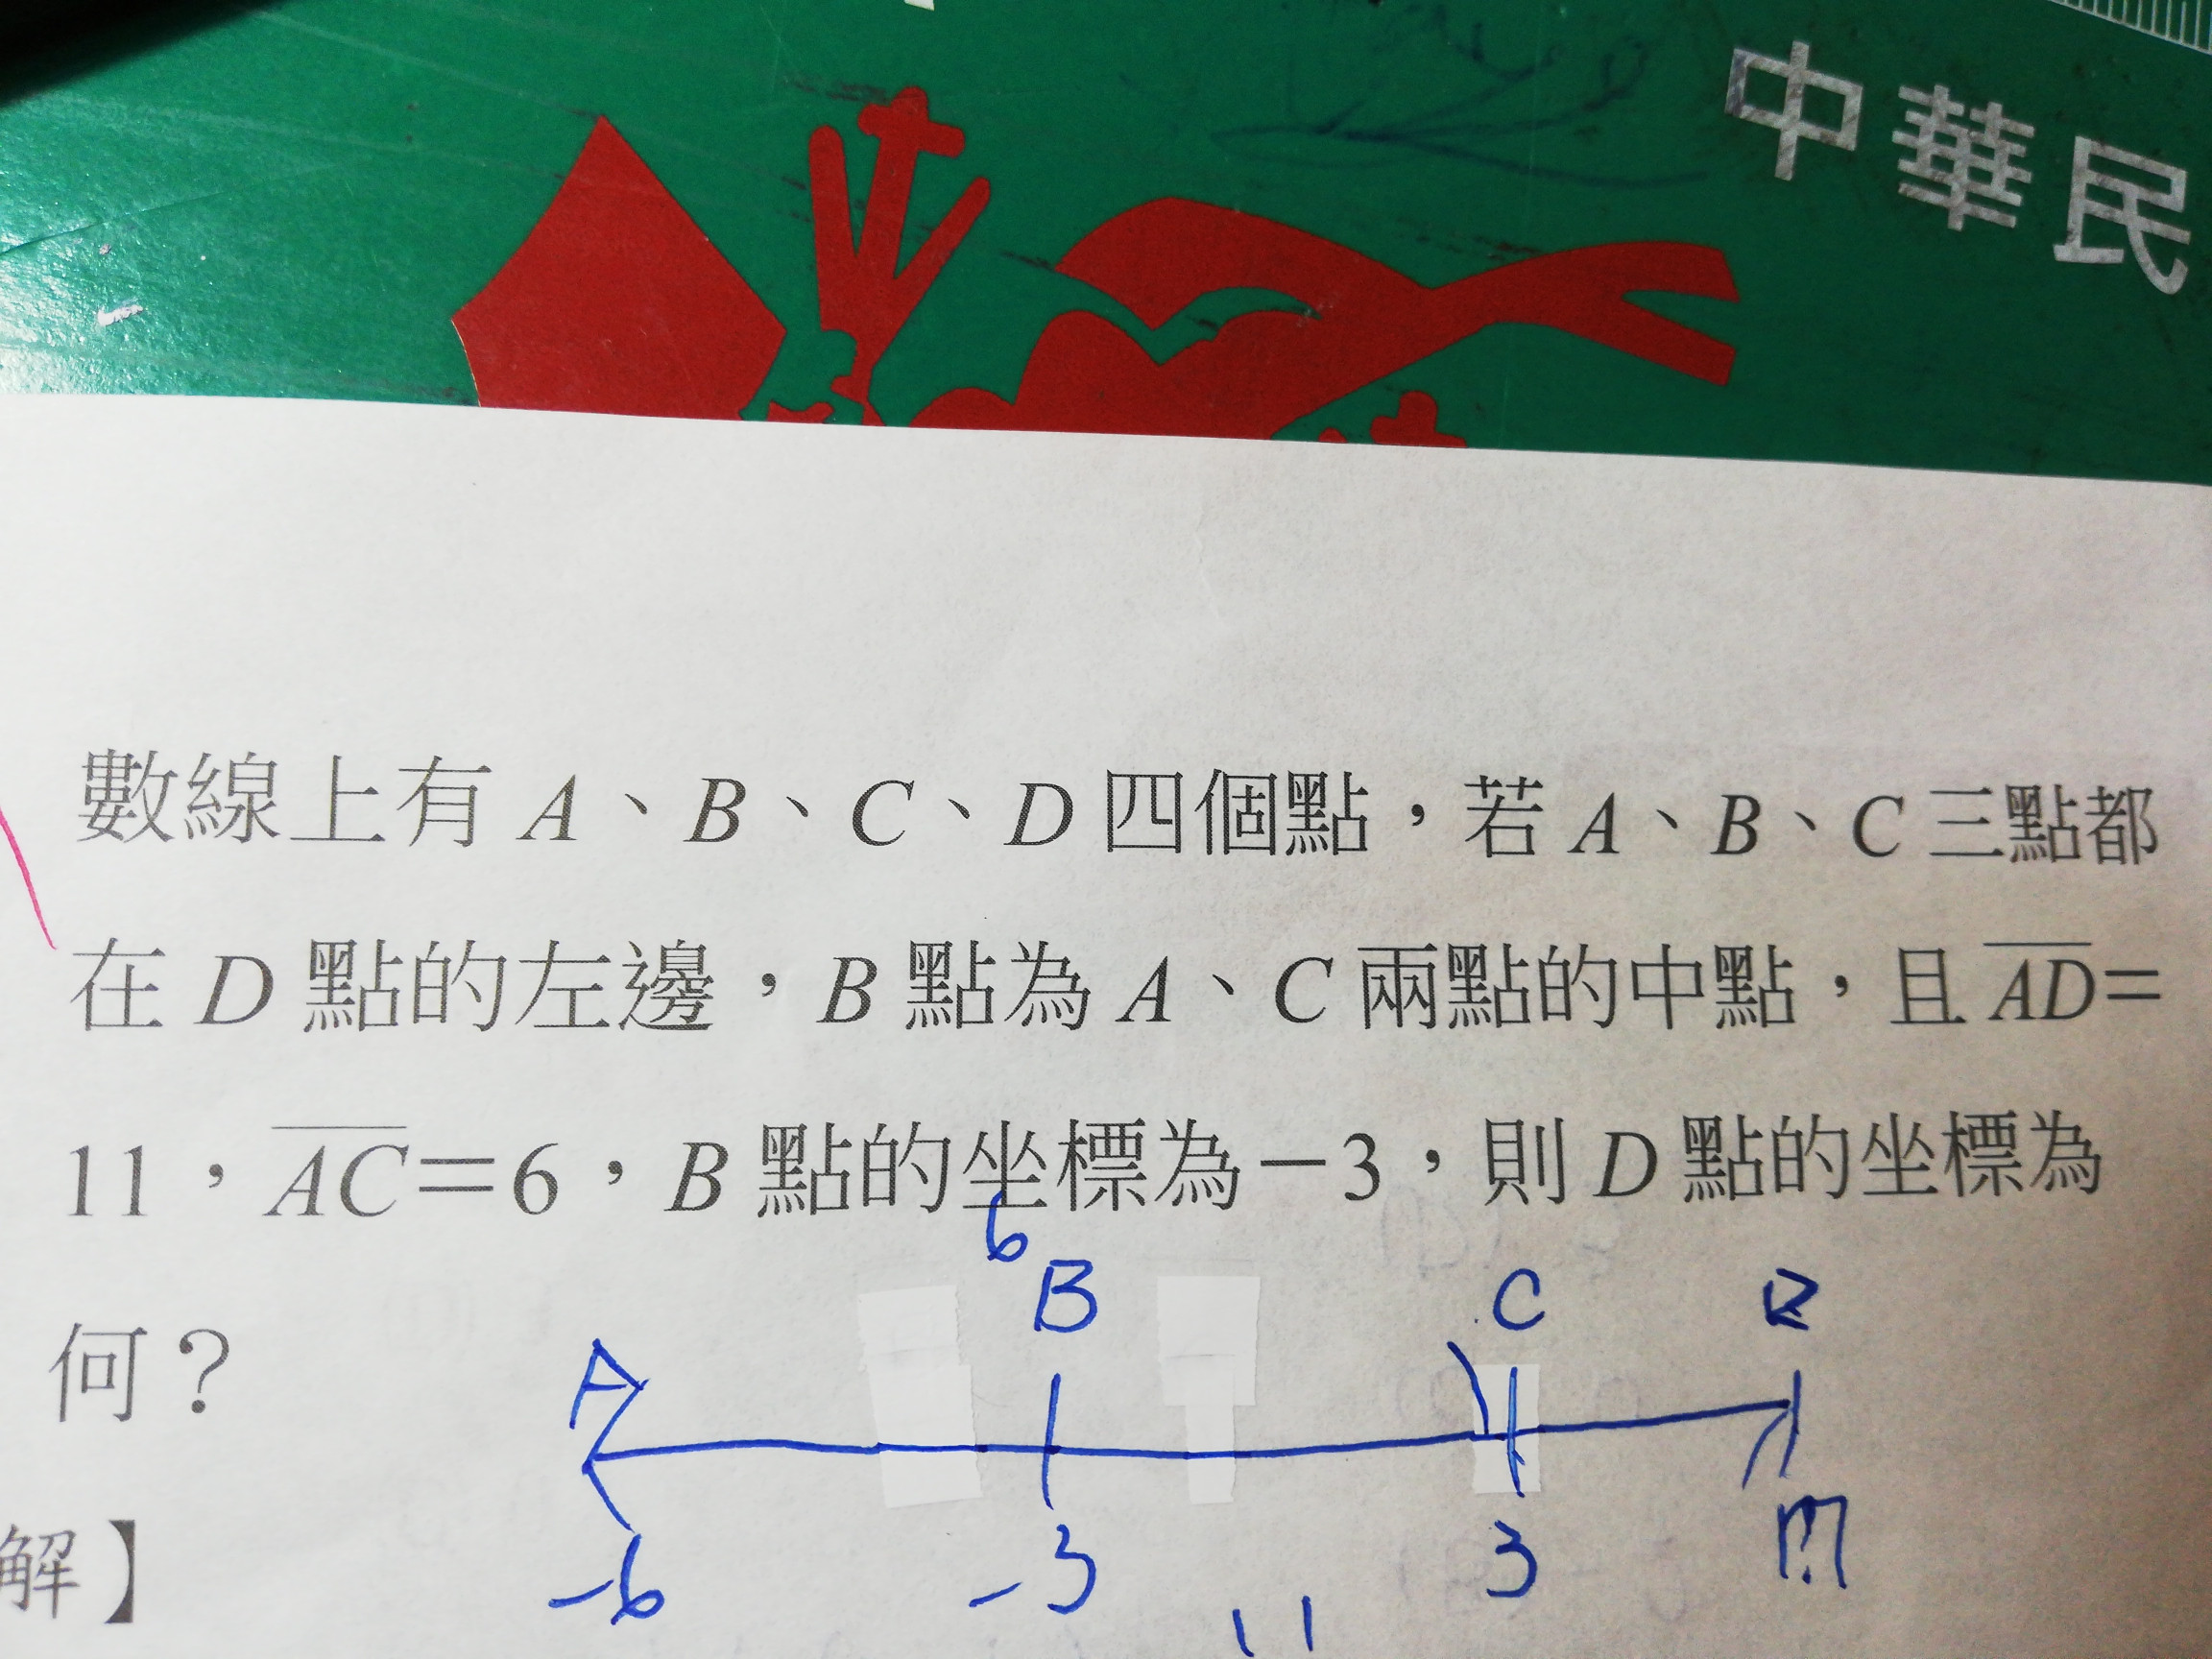 中華民
數線上有 A、B、C、D 四個點，若 A、B、C 三點都
在 D 點的左邊，B 點為 A、C 兩點的中點，且 AD=
11，AC=6，B 點的坐標為-3，則 D 點的坐標為
何？
6
A B C
-6 -3 3
11
解】